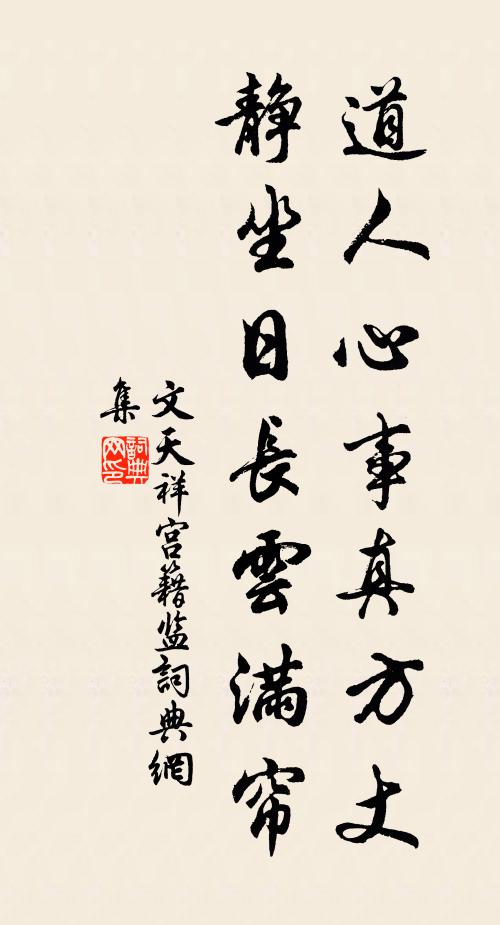 道人心事真方丈
静坐日長雲滿帘
文天祥宫籍监詞典網
集
詞典网印